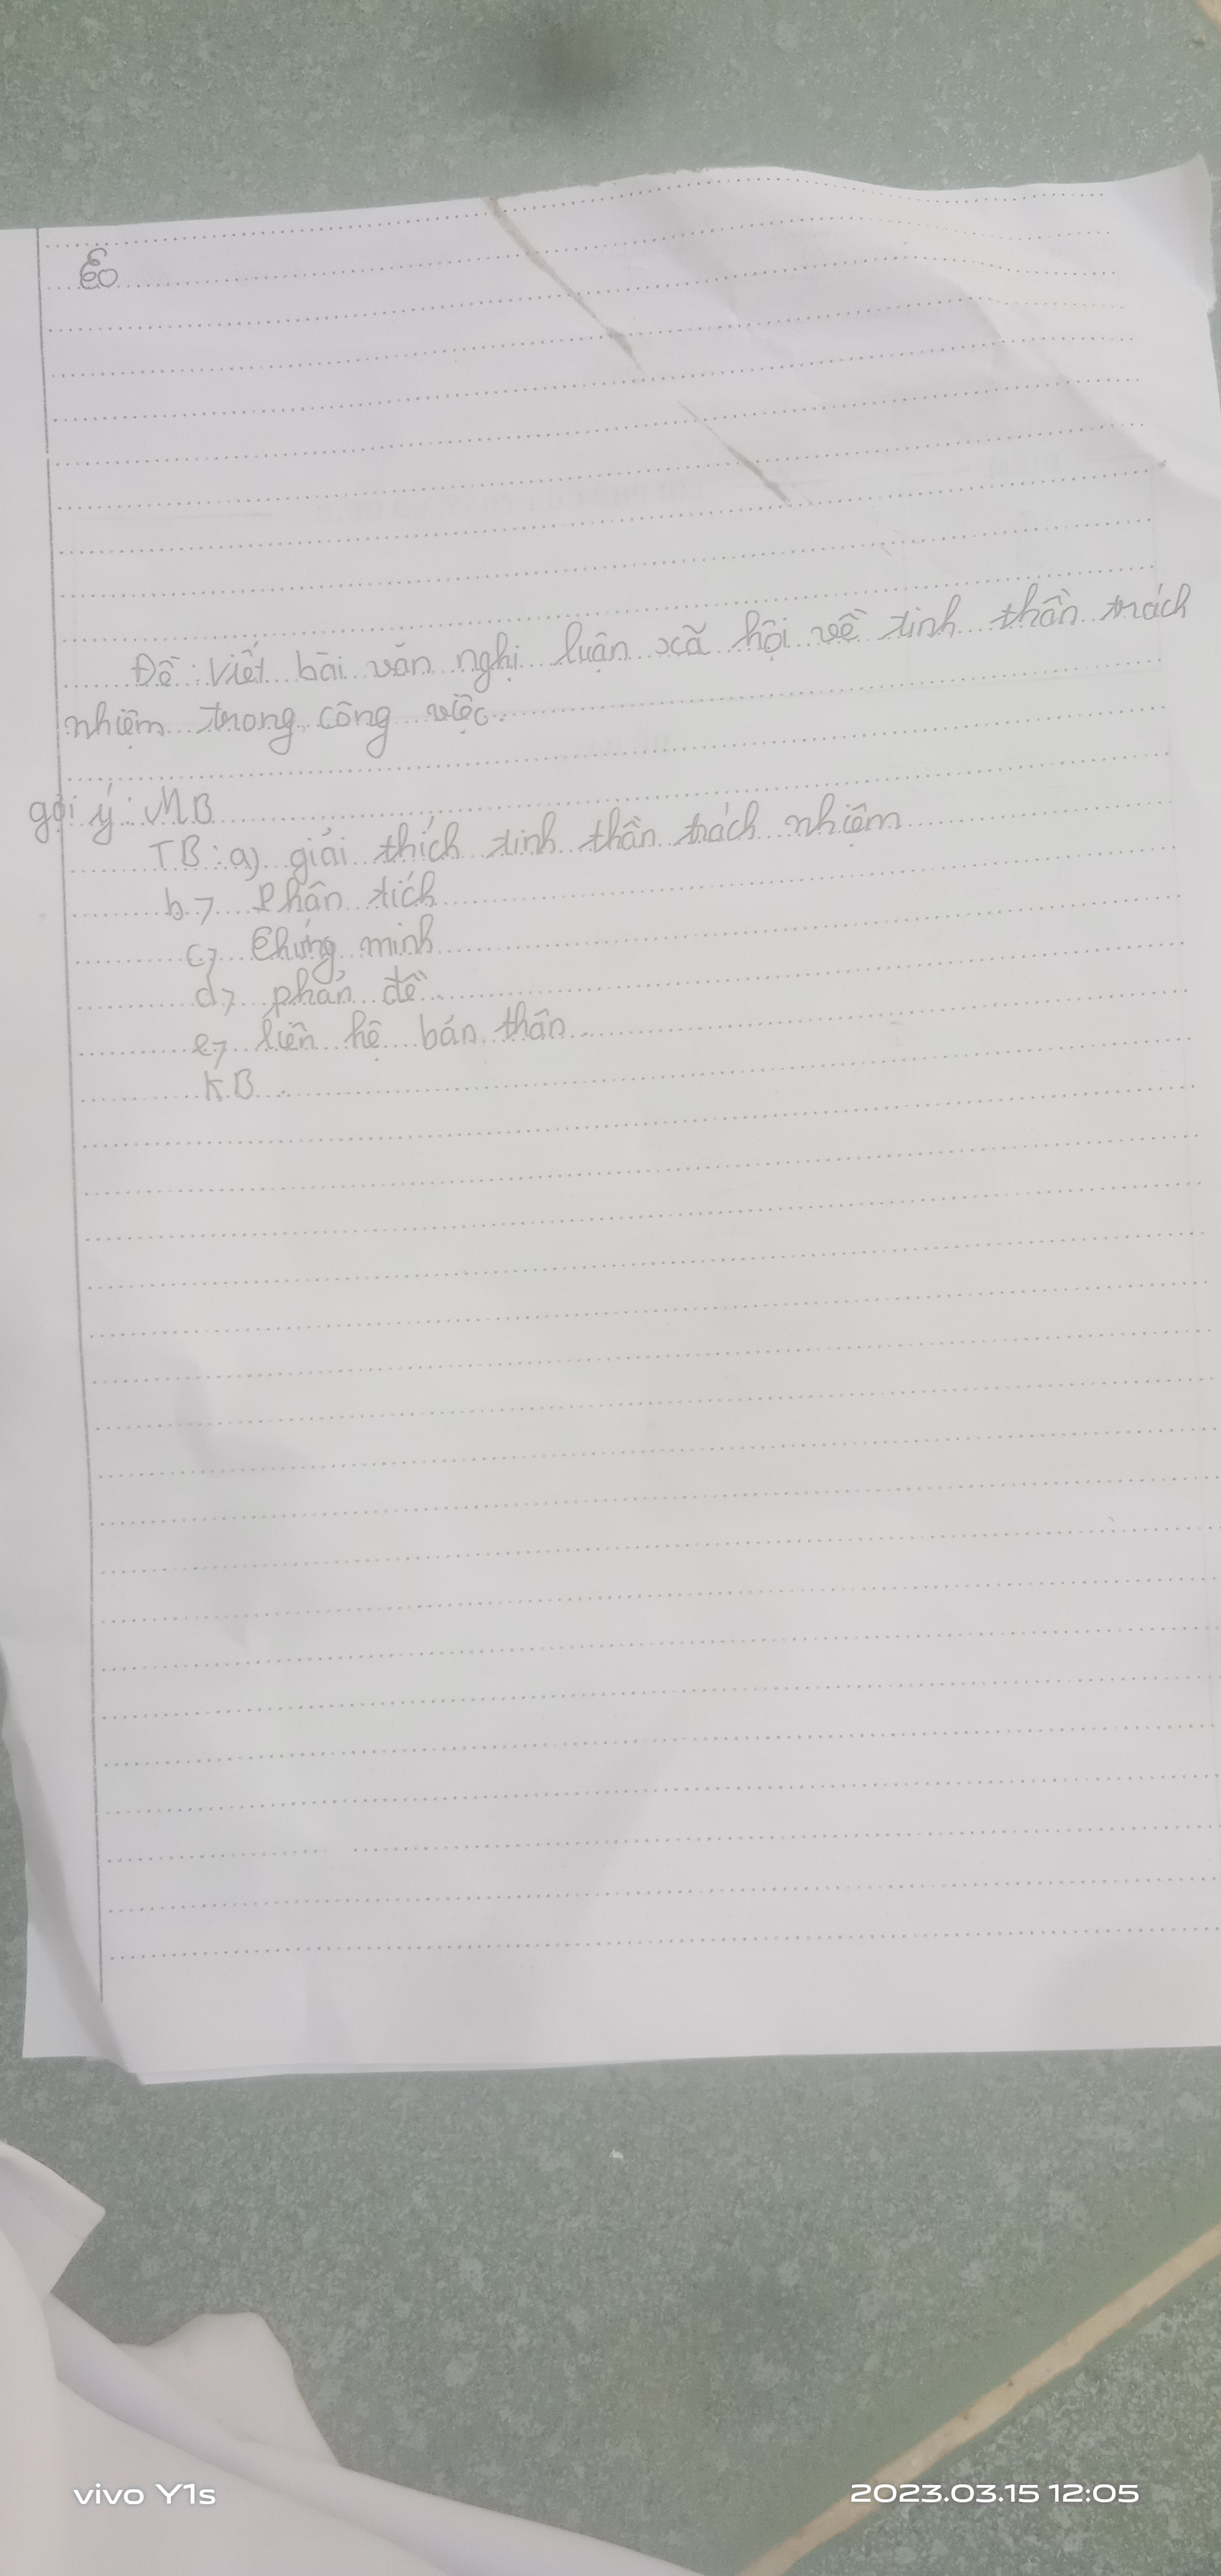 Eo
Đề: Viết bài văn nghị luận xã hội về tinh thần trách
nhiệm trong công việc.
gợi ý: MB
TB: a) giải thích tinh thần trách nhiệm
b) Phân tích
c) Chứng minh
d) phản đề
e) liên hệ bản thân
KB
vivo Y1s
2023.03.15 12:05